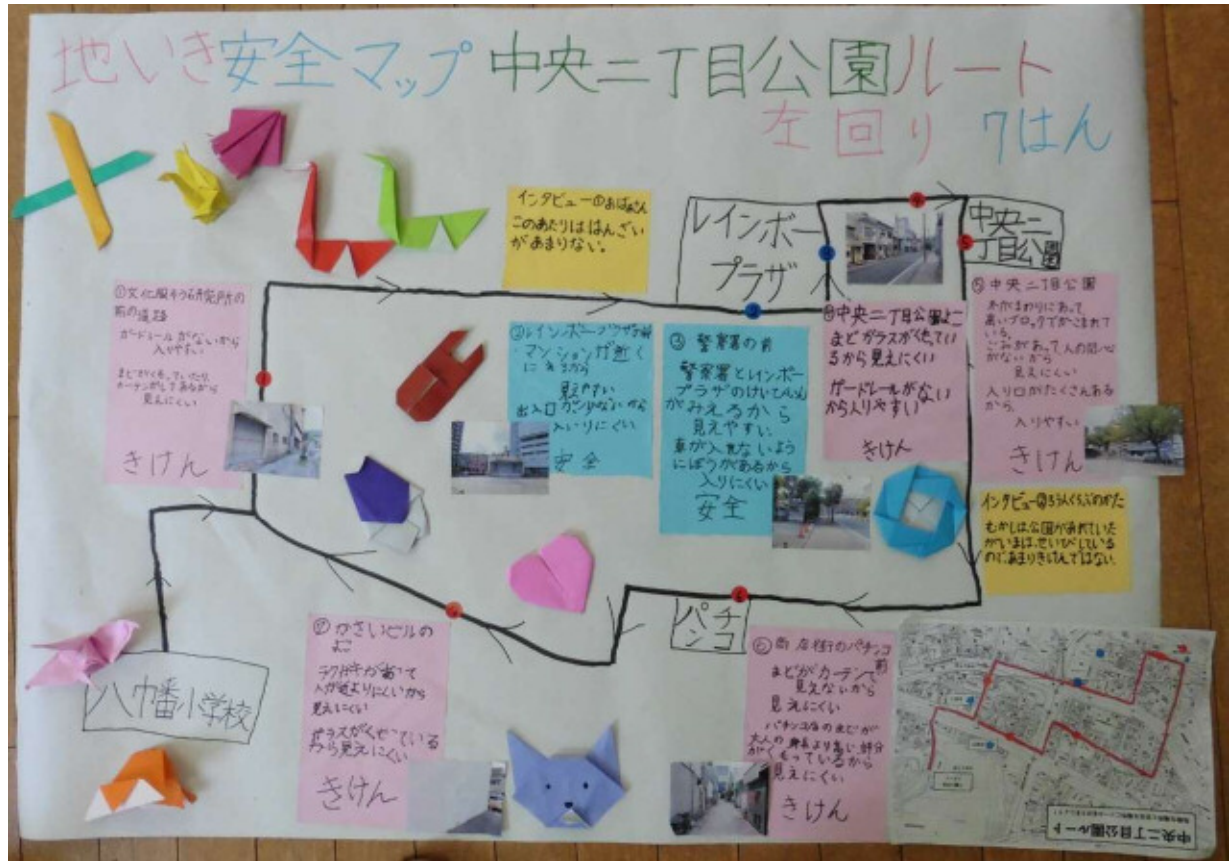 地いき安全マップ 中央二丁目公園ルート
左回り 7はん
インタビュー①おばあさん
このあたりははんざい
があまりない。
レインボー
プラザ
中央二
丁目公園
①文化服そう研究所の
前の道路
ガードレールがないから
入りやすい
まどがくもっていたり、
カーテンがしてあるから
見えにくい
きけん
②レインボープラザの前
マンションが近く
にあるから
見えやすい
出入口が少ないから
入りにくい
安全
③ 警察署の前
警察署とレインボー
プラザのけいびいん
がみえるから
見えやすい。
車が入れないよう
にぼうがあるから
入りにくい
安全
④中央二丁目公園よこ
まどガラスがくもってい
るから見えにくい
ガードレールがない
から入りやすい
きけん
⑤中央二丁目公園
木がまわりにあって
高いブロックでかこまれて
いる。
ごみがあって人の関心
がないから
見えにくい
入り口がたくさんある
から、
入りやすい
きけん
インタビュー②ろうじんくらぶのかた
むかしは公園があれていた
がいまは、せいびしている
ので、あまりきけんではない。
パチ
ンコ
八幡小学校
⑦ かさいビルの
よこ
ラクガキがあって
人が近よりにくいから
見えにくい
ガラスがくもっている
から見えにくい
きけん
⑥ 商店街のパチンコ
前
まどがカーテンで
見えないから
見えにくい
パチンコ店のまどが
大人の身長より高い部分
がくもっているから
見えにくい
きけん
中央二丁目公園ルート